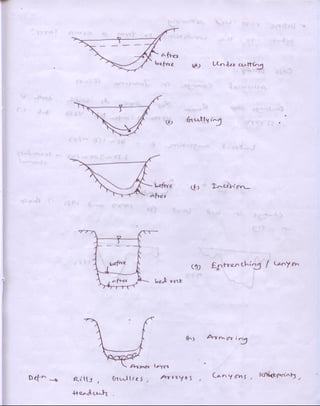 after
before
(d) Under cutting
(e) Gullying
before
(f) Incision
after
before
(g) Entrenching / Canyon
after
bed rock
(h) Armoring
Armor layer
Defn → Rills, Gullies, Arroyos, Canyons, Knickpoints,
Headcuts.